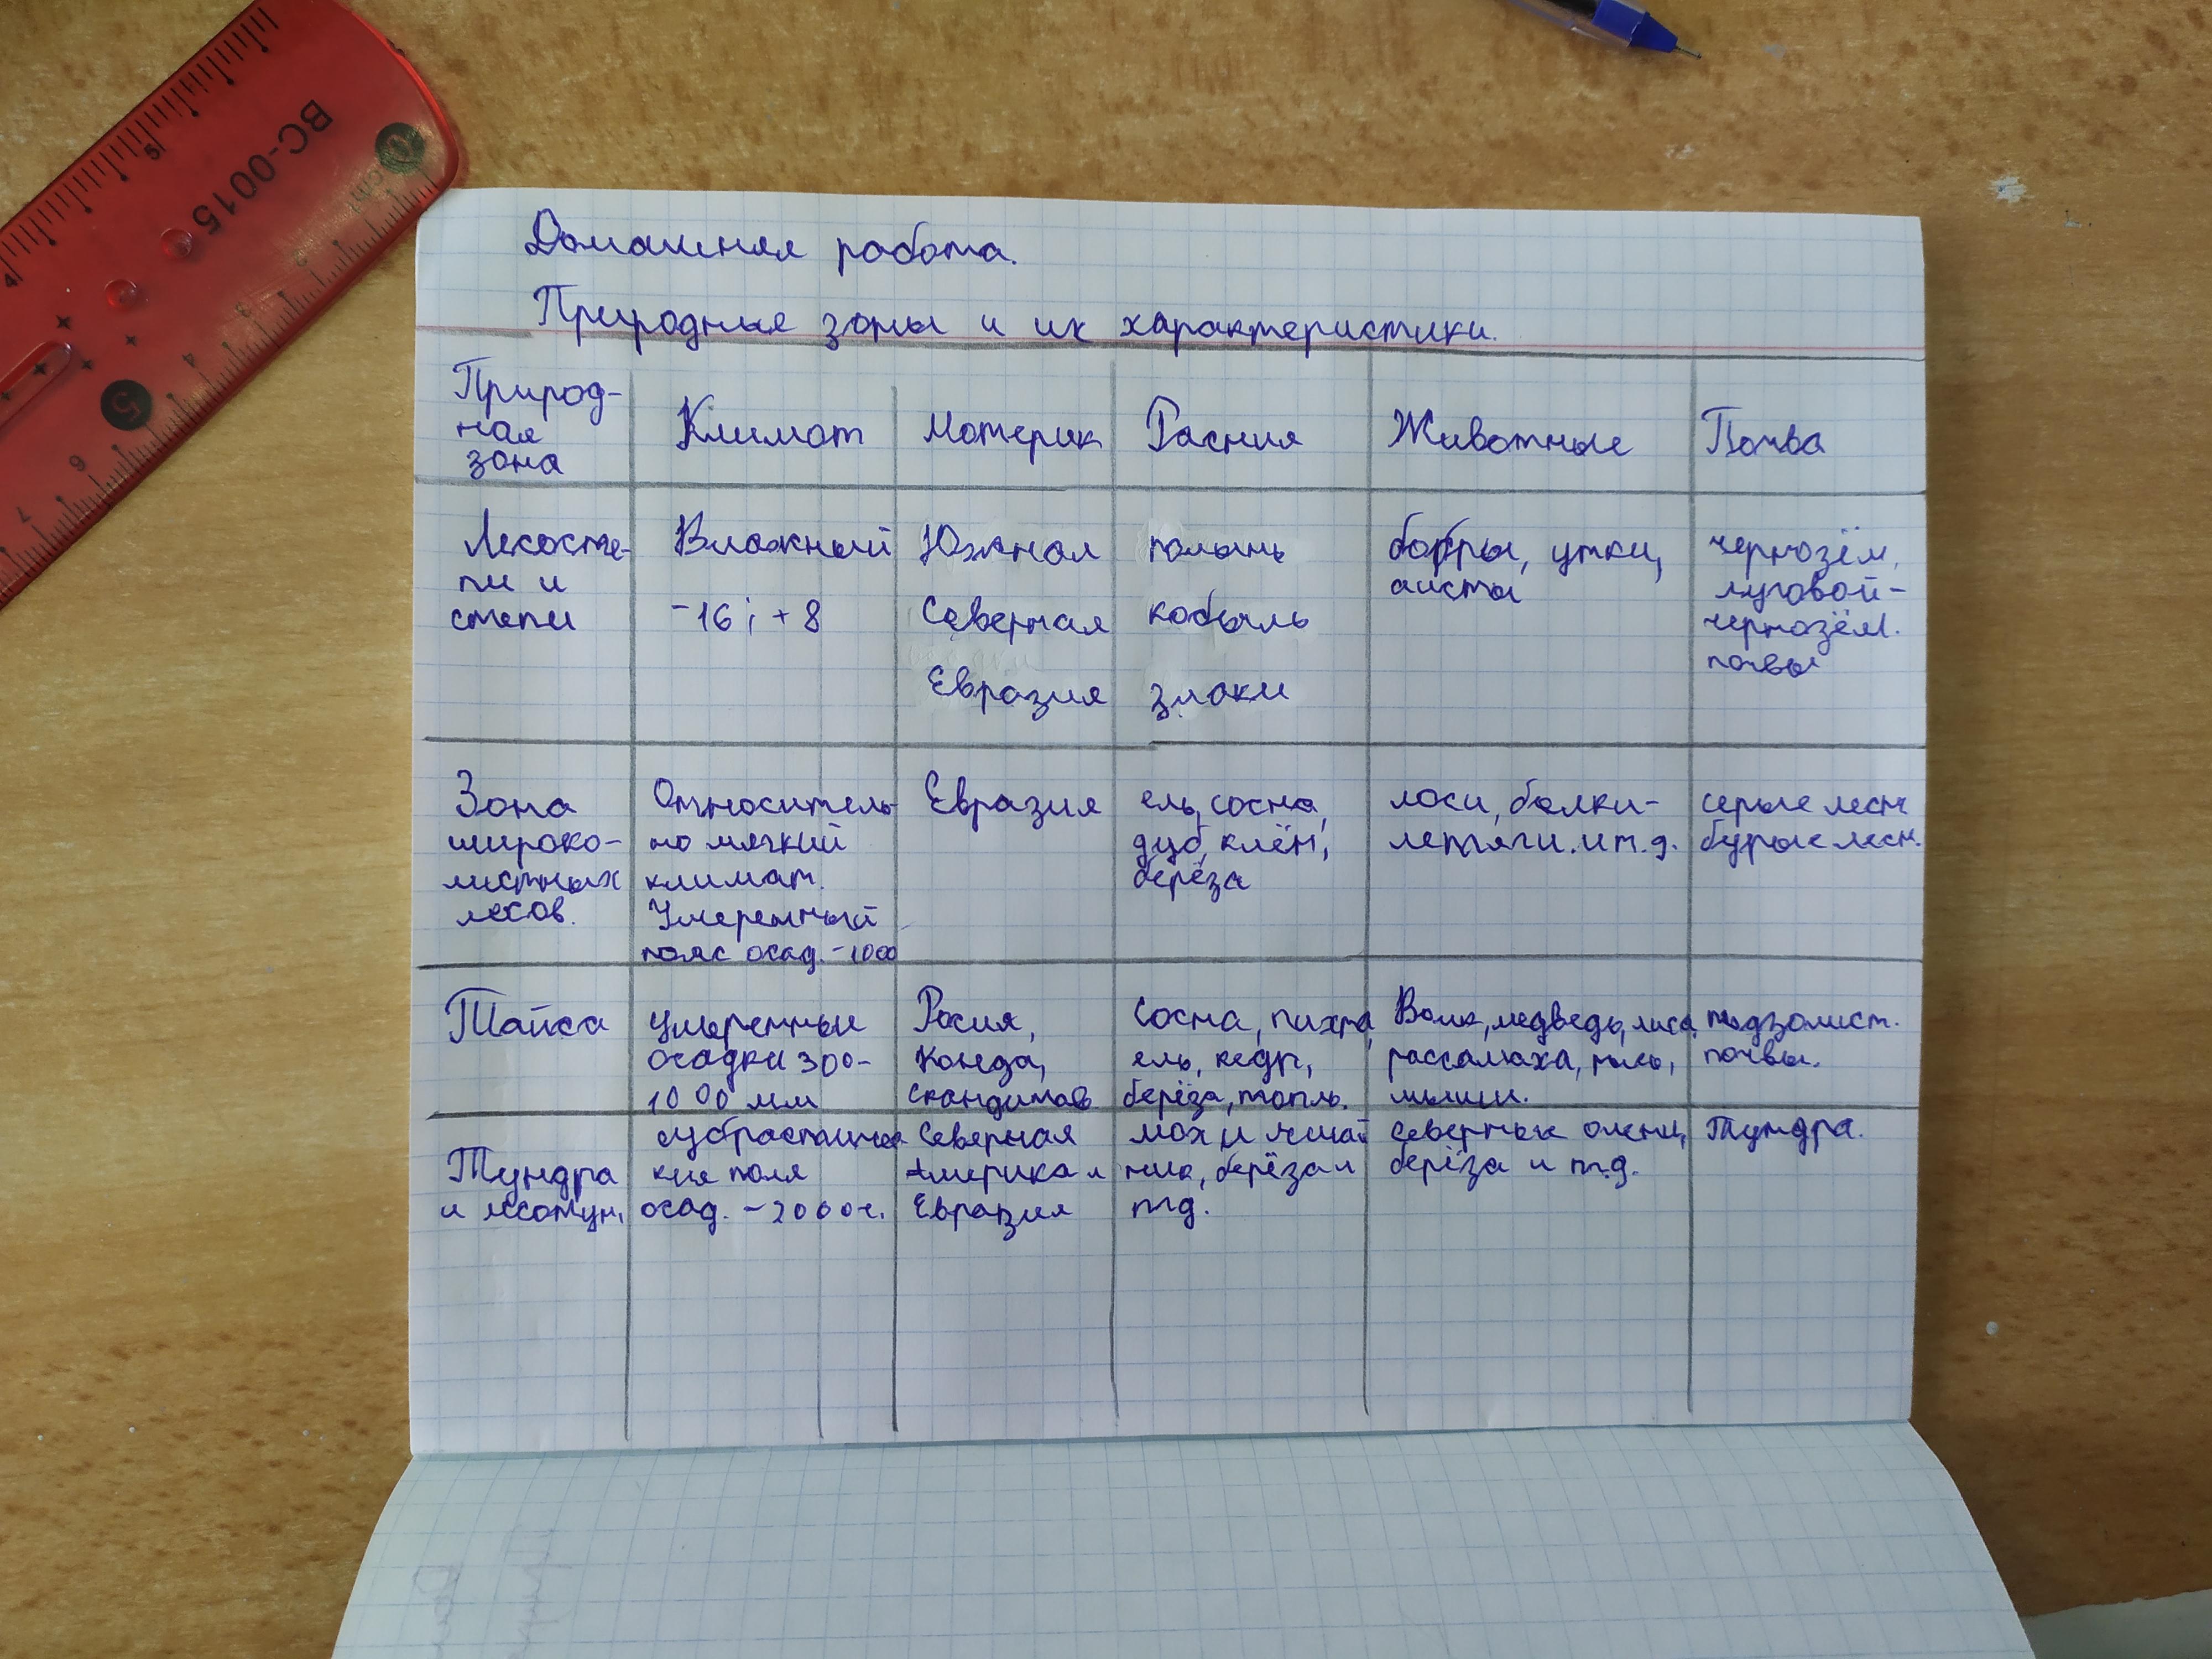 Домашняя работа.
Природные зоны и их характеристики.
Природ-
ная
зона
Климат
Материк
Расния
Животные
Почва
Лесосте-
пи и
степи
Влажный
-16; +8
Южная
Северная
Евразия
полынь
ковыль
злаки
бобры, утки,
аисты
чернозём,
луговой-
чернозём.
почвы
Зона
широко-
лиственных
лесов.
Относитель-
но мягкий
климат.
Умеренный
пояс осад. -1000
Евразия
ель, сосна,
дуб, клён,
берёза
лоси, белки-
летяги. и т. д.
серые лесн
бурые лесн.
Тайга
умеренные
осадки 300-
1000 мм
Росия,
Канда,
скандинав.
Сосна, пихта,
ель, кедр,
берёза, тополь.
Волк, медведь, лиса,
рассамаха, рысь,
мыши.
подзолист.
почвы.
Тундра
и лесотун,
кие поля
осад. -2000
Северная
Америка и
Евразия
мох и лишай
ник, берёза и
тд.
северные олени,
берёза и т.д.
Тундра.
ВС-0015
cm
4
5
10
2
3
5
6
7